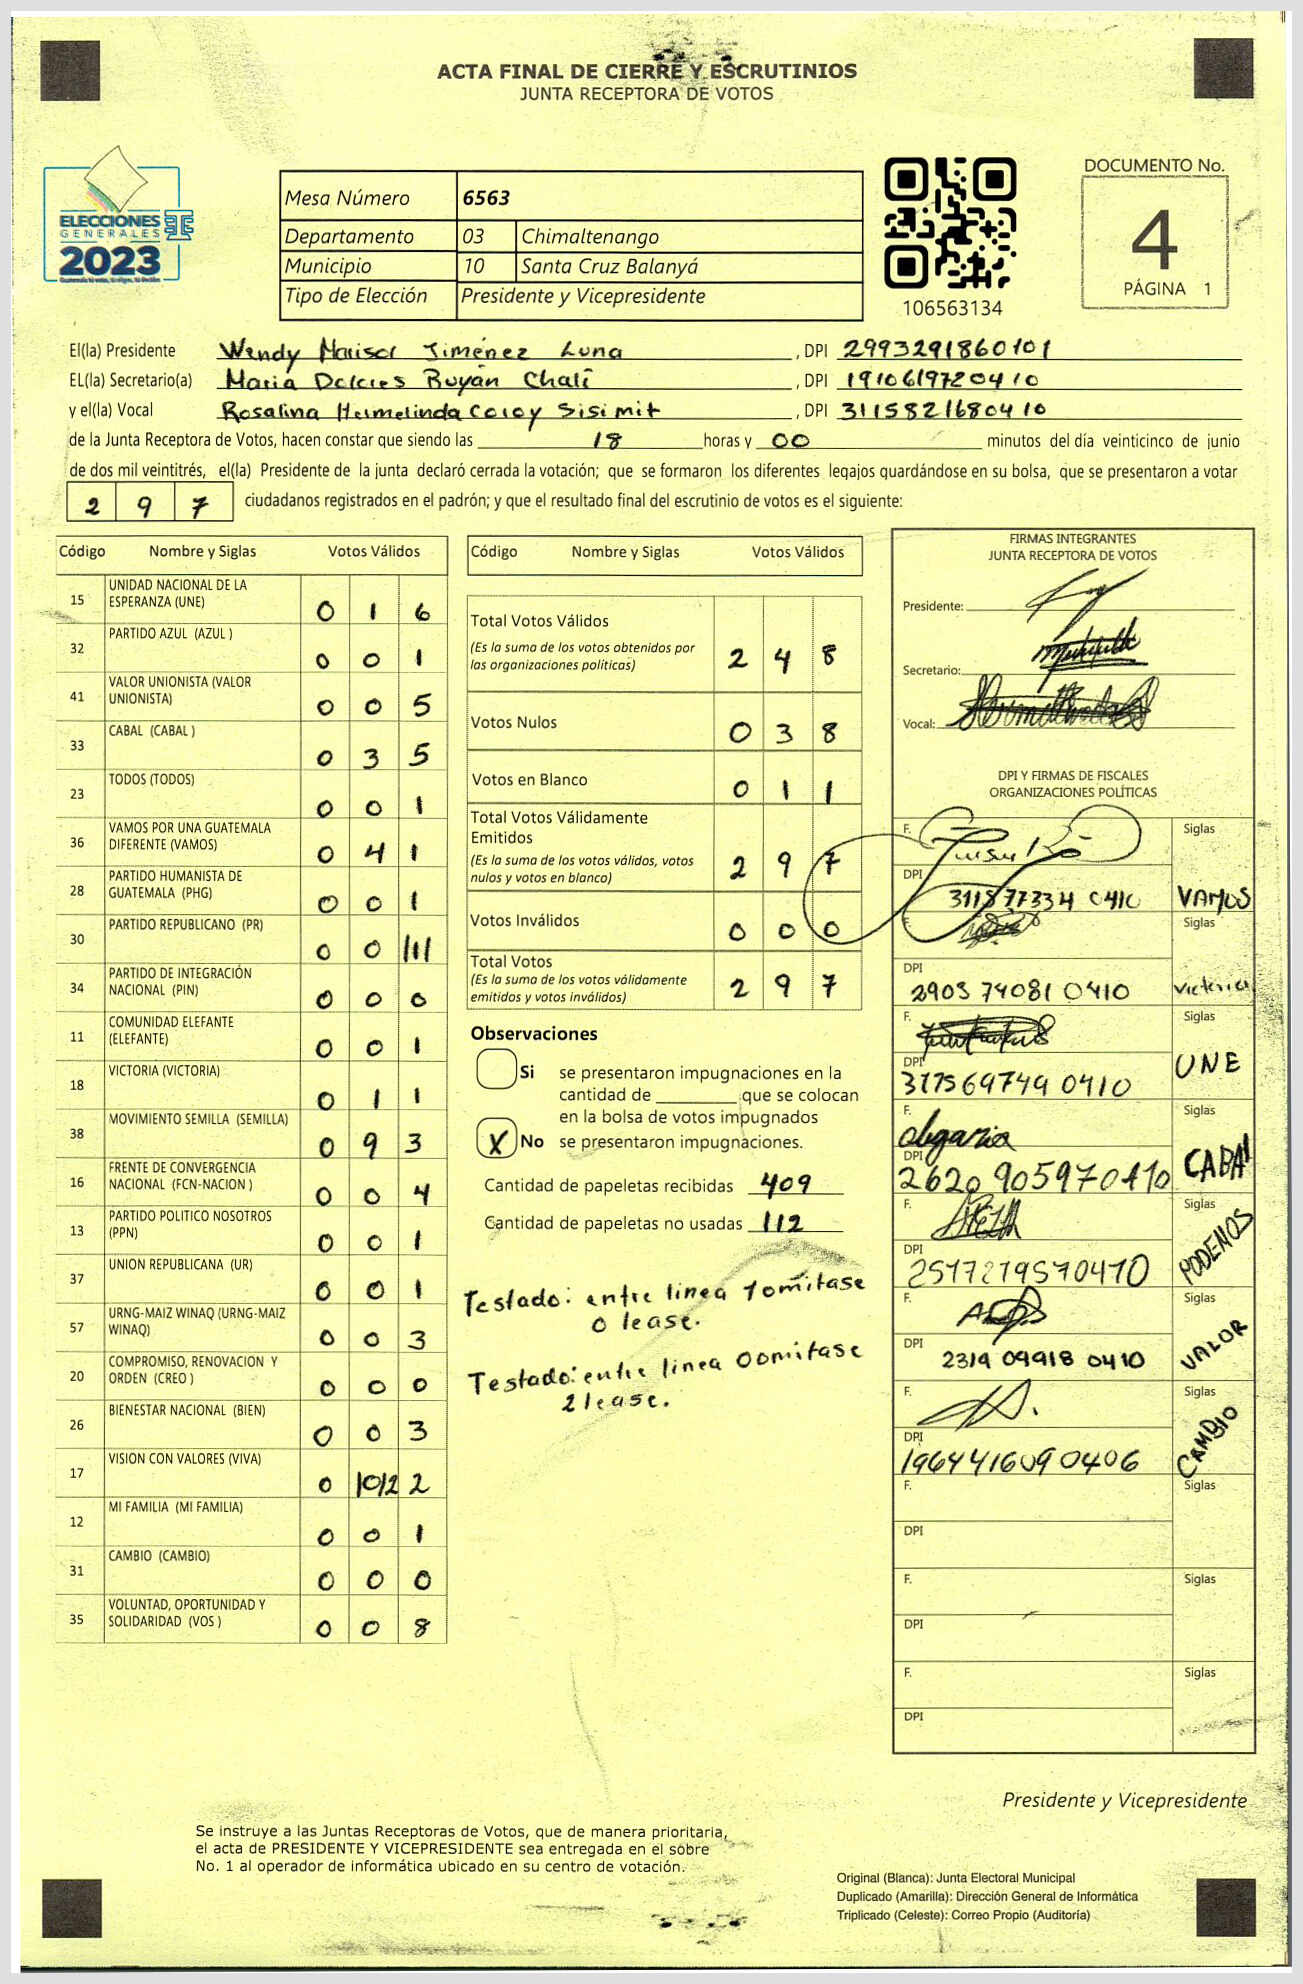 ACTA FINAL DE CIERRE Y ESCRUTINIOS
JUNTA RECEPTORA DE VOTOS
ELECCIONES
GENERALES
2023
Mesa Número 6563
Departamento 03 Chimaltenango
Municipio 10 Santa Cruz Balanyá
Tipo de Elección Presidente y Vicepresidente
106563134
DOCUMENTO No.
4
PÁGINA 1
El(la) Presidente Wendy Marisol Jiménez Luna , DPI 2993291860101
EL(la) Secretario(a) Maria Dolores Buyán Chalí , DPI 1910619720410
y el(la) Vocal Rosalina Hermelinda Coroy Sisimit , DPI 3115821680410
de la Junta Receptora de Votos, hacen constar que siendo las 18 horas y 00 minutos del día veinticinco de junio
de dos mil veintitrés, el(la) Presidente de la junta declaró cerrada la votación; que se formaron los diferentes legajos quardándose en su bolsa, que se presentaron a votar
2 9 7 ciudadanos registrados en el padrón; y que el resultado final del escrutinio de votos es el siguiente:
Código Nombre y Siglas Votos Válidos
15 UNIDAD NACIONAL DE LA
ESPERANZA (UNE) 0 1 6
32 PARTIDO AZUL (AZUL ) 0 0 1
41 VALOR UNIONISTA (VALOR
UNIONISTA) 0 0 5
33 CABAL (CABAL ) 0 3 5
23 TODOS (TODOS) 0 0 1
36 VAMOS POR UNA GUATEMALA
DIFERENTE (VAMOS) 0 4 1
28 PARTIDO HUMANISTA DE
GUATEMALA (PHG) 0 0 1
30 PARTIDO REPUBLICANO (PR) 0 0
34 PARTIDO DE INTEGRACIÓN
NACIONAL (PIN) 0 0 0
11 COMUNIDAD ELEFANTE
(ELEFANTE) 0 0 1
18 VICTORIA (VICTORIA) 0 1 1
38 MOVIMIENTO SEMILLA (SEMILLA) 0 9 3
16 FRENTE DE CONVERGENCIA
NACIONAL (FCN-NACION ) 0 0 4
13 PARTIDO POLITICO NOSOTROS
(PPN) 0 0 1
37 UNION REPUBLICANA (UR) 0 0 1
57 URNG-MAIZ WINAQ (URNG-MAIZ
WINAQ) 0 0 3
20 COMPROMISO, RENOVACION Y
ORDEN (CREO ) 0 0 0
26 BIENESTAR NACIONAL (BIEN) 0 0 3
17 VISION CON VALORES (VIVA) 0 |0|2 2
12 MI FAMILIA (MI FAMILIA) 0 0 1
31 CAMBIO (CAMBIO) 0 0 0
35 VOLUNTAD, OPORTUNIDAD Y
SOLIDARIDAD (VOS ) 0 0 8
Código Nombre y Siglas Votos Válidos
Total Votos Válidos
(Es la suma de los votos obtenidos por
las organizaciones políticas) 2 4 8
Votos Nulos 0 3 8
Votos en Blanco 0 1 1
Total Votos Válidamente
Emitidos
(Es la suma de los votos válidos, votos
nulos y votos en blanco) 2 9 7
Votos Inválidos 0 0 0
Total Votos
(Es la suma de los votos válidamente
emitidos y votos inválidos) 2 9 7
Observaciones
Si se presentaron impugnaciones en la
cantidad de ________ que se colocan
en la bolsa de votos impugnados
X No se presentaron impugnaciones.
Cantidad de papeletas recibidas 409
Cantidad de papeletas no usadas 112
Testado: entre linea 1 omitase
0 lease.
Testado: entre linea 0 omitase
2 lease.
FIRMAS INTEGRANTES
JUNTA RECEPTORA DE VOTOS
Presidente:
Secretario:
Vocal:
DPI Y FIRMAS DE FISCALES
ORGANIZACIONES POLÍTICAS
F. Siglas
DPI 3118 77334 0410 VAMOS
F. Siglas
DPI 2903 74081 0410 Victoria
F. Siglas
DPI 317569749 0410 UNE
F. olegaria Siglas
DPI 2620 905970410 CABAl
F. Siglas
DPI 2517219570410 PODEMOS
F. Siglas
DPI 2319 09918 0410 VALOR
F. Siglas
DPI 1964416090406 CAMBIO
F. Siglas
DPI
F. Siglas
DPI
F. Siglas
DPI
Presidente y Vicepresidente
Se instruye a las Juntas Receptoras de Votos, que de manera prioritaria,
el acta de PRESIDENTE Y VICEPRESIDENTE sea entregada en el sobre
No. 1 al operador de informática ubicado en su centro de votación.
Original (Blanca): Junta Electoral Municipal
Duplicado (Amarilla): Dirección General de Informática
Triplicado (Celeste): Correo Propio (Auditoría)